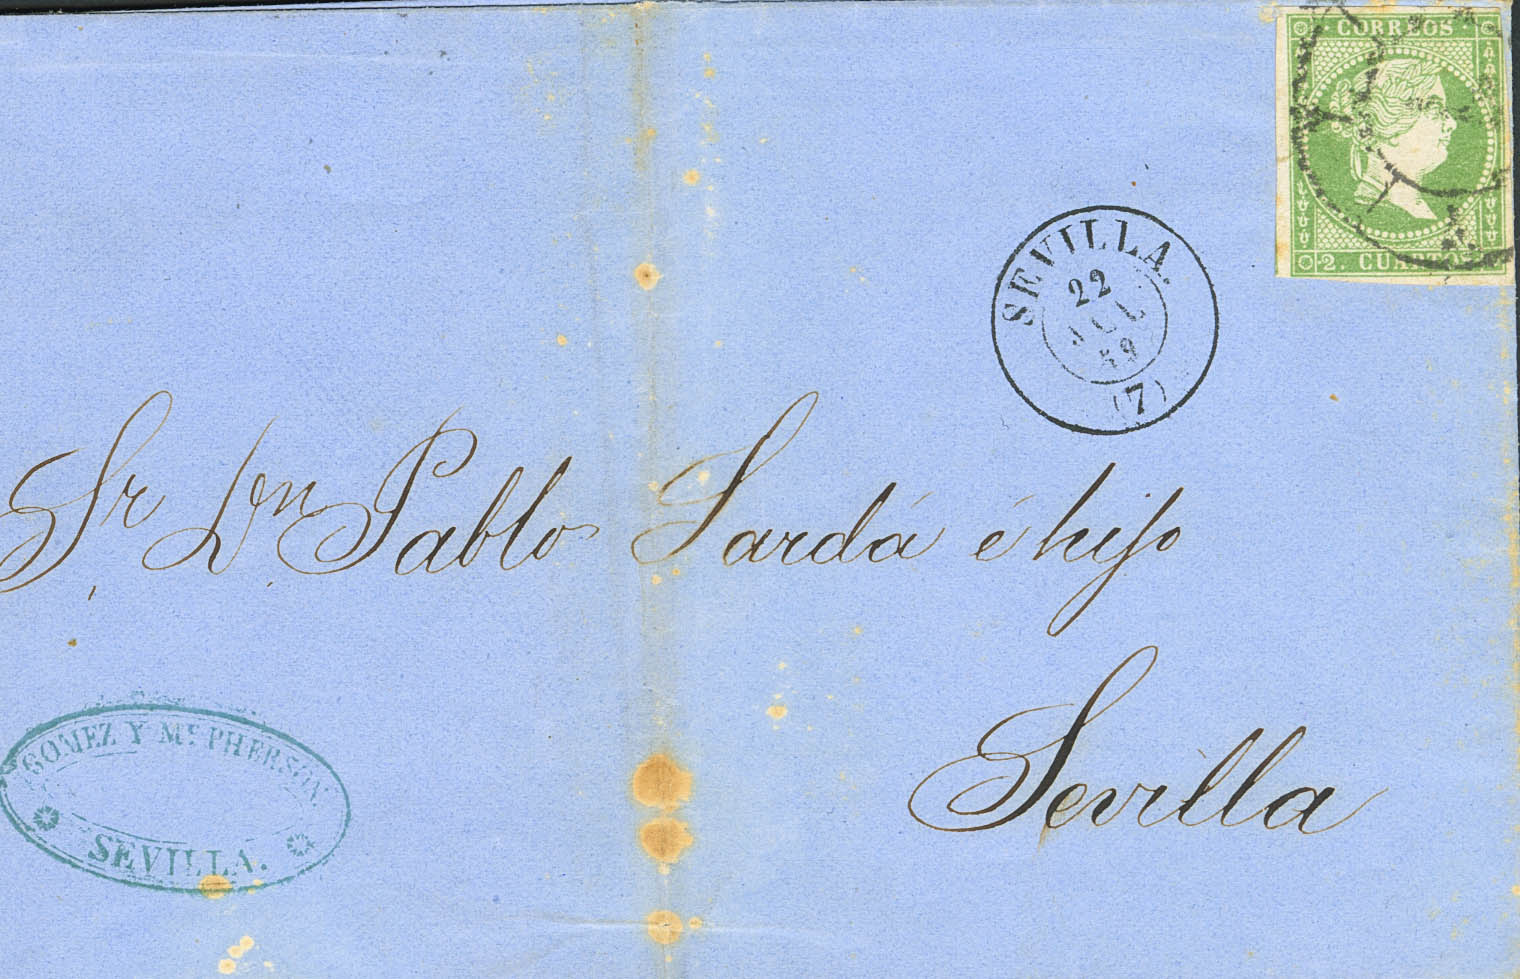 CORREOS
2. CUARTOS.
SEVILLA.
22
JUL
59
(7)
Sr Dn Pablo Sardá é hijo
Sevilla
GOMEZ Y Mc. PHERSON
SEVILLA.